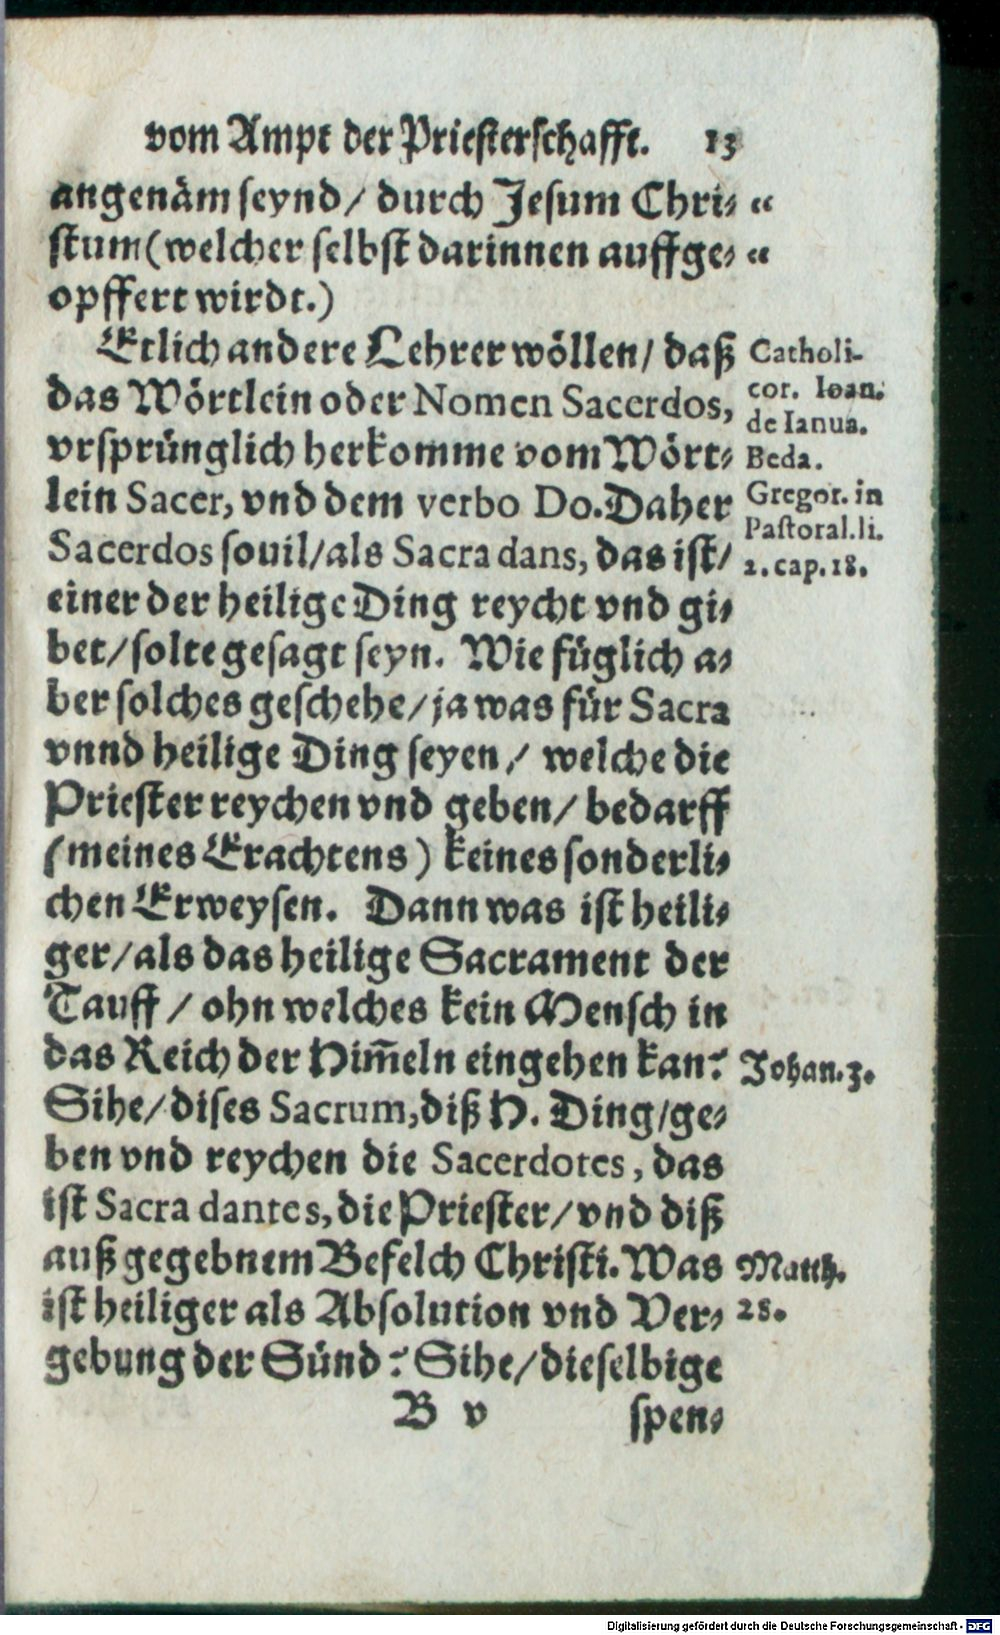 vom Ampt der Priesterschafft. 13
angenäm seynd/ durch Jesum Chri- “
stum (welcher selbst darinnen auffge- “
opffert wirdt.)
Etlich andere Lehrer wöllen/ daß
das Wörtlein oder Nomen Sacerdos,
vrsprünglich herkomme vom Wört-
lein Sacer, vnd dem verbo Do. Daher
Sacerdos souil/als Sacra dans, das ist/
einer der heilige Ding reycht vnd gi-
bet/solte gesagt seyn. Wie füglich a-
ber solches geschehe/ja was für Sacra
vnnd heilige Ding seyen/ welche die
Priester reychen vnd geben/ bedarff
(meines Erachtens) keines sonderli-
chen Erweysen. Dann was ist heili-
ger/als das heilige Sacrament der
Tauff / ohn welches kein Mensch in
das Reich der Him̄eln eingehen kan?
Sihe/dises Sacrum, diß H. Ding/ge-
ben vnd reychen die Sacerdotes, das
ist Sacra dantes, die Priester/vnd diß
auß gegebnem Befelch Christi. Was
ist heiliger als Absolution vnd Ver-
gebung der Sünd? Sihe/dieselbige
B v spen-
Catholi-
cor. Ioan.
de Ianua.
Beda.
Gregor. in
Pastoral.li.
2.cap.18.
Johan.3.
Matth.
28.
Digitalisierung gefördert durch die Deutsche Forschungsgemeinschaft - DFG